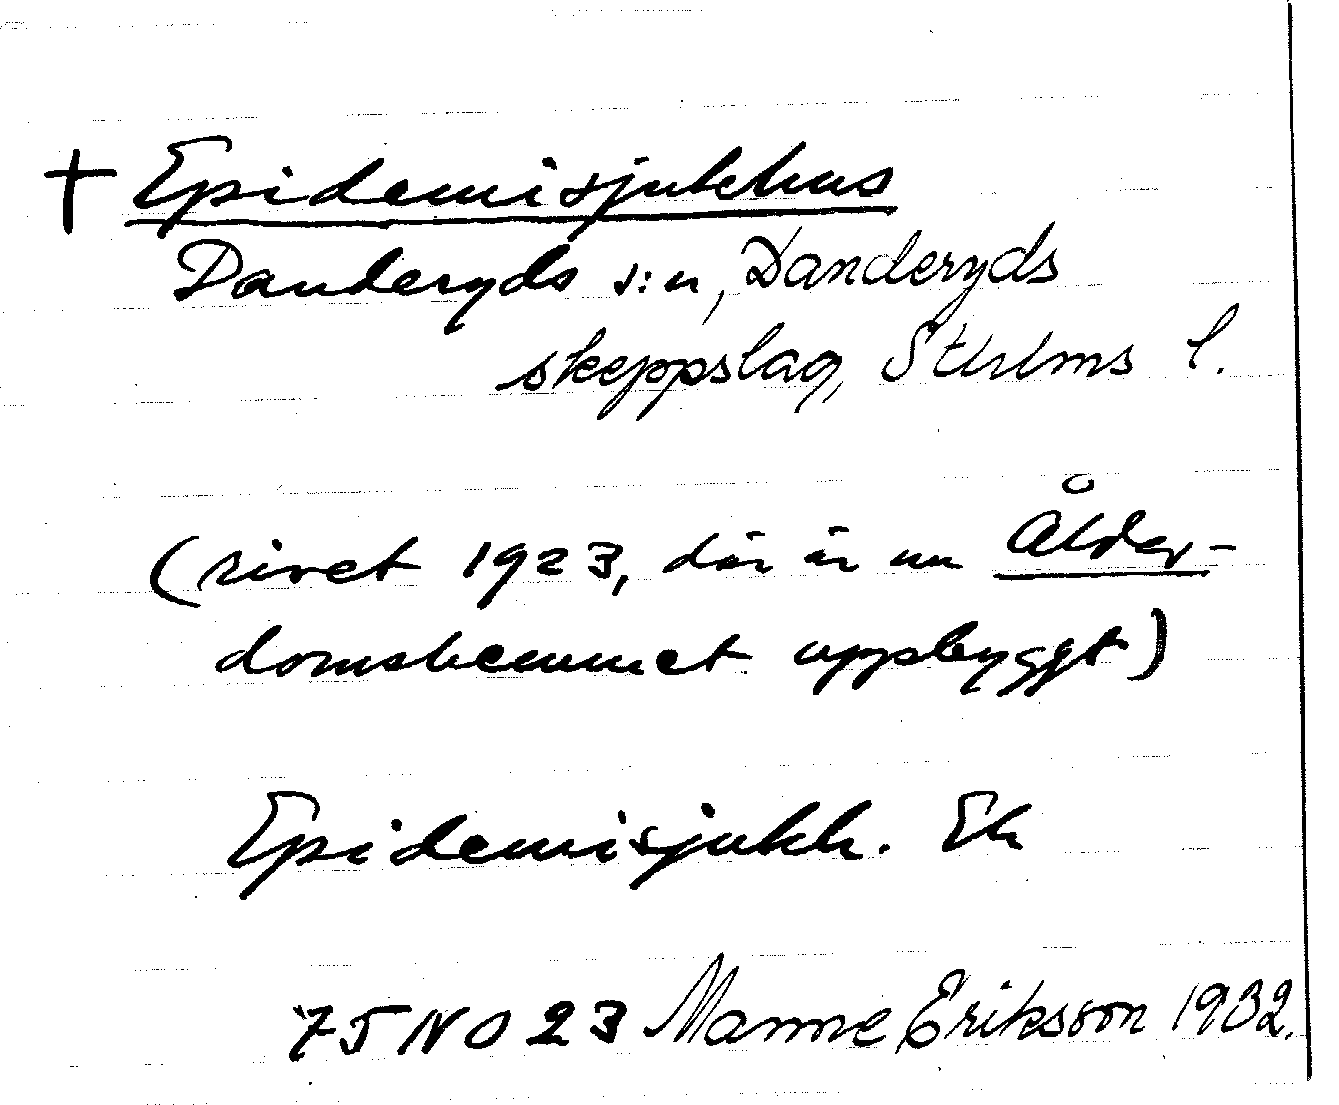 † Epidemisjukhus
Danderyds s:n, Danderyds
skeppslag, Sthlms l.
(rivet 1923, där är nu Ålder-
domshemmet uppbyggt)
Epidemisjukh. Ek
75 NO 23 Manne Eriksson 1932.